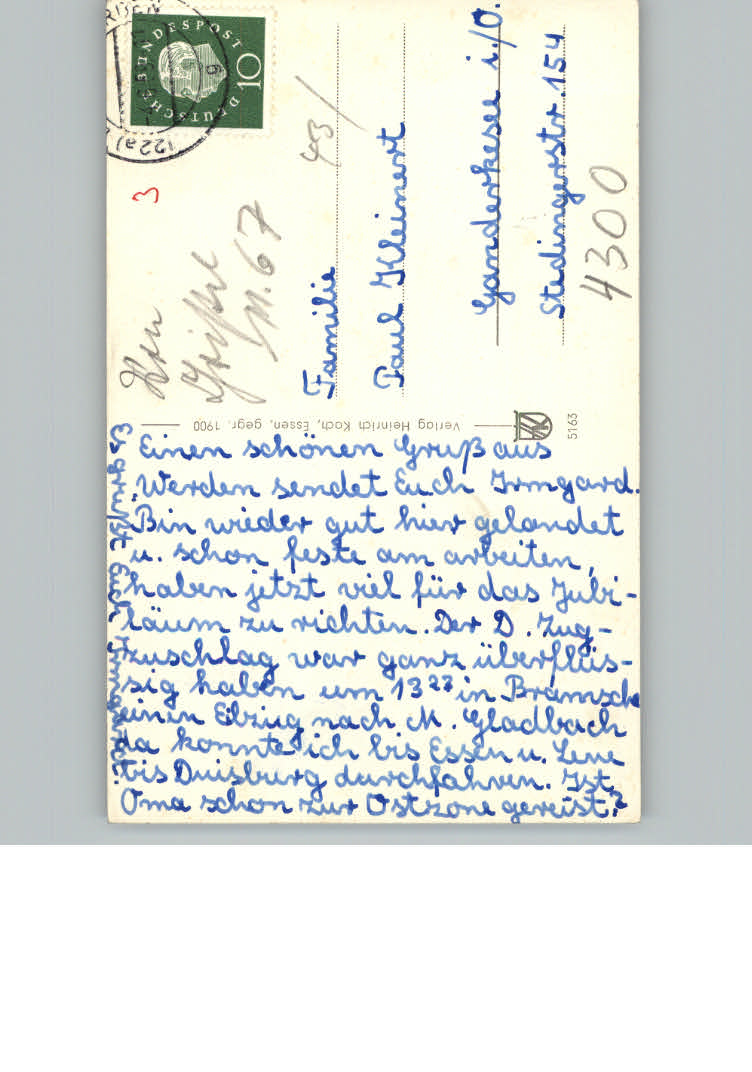 Einen schönen Gruß aus
Werden sendet Euch Irmgard.
Bin wieder gut hier gelandet
u. schon feste am arbeiten,
haben jetzt viel für das Jubi-
läum zu richten. Der D. Zug-
zuschlag war ganz überflüs-
sig haben um 13 27 in Bramsche
einen Eilzug nach M. Gladbach
da konnte ich bis Essen u. Lene
bis Duisburg durchfahren. Ist
Oma schon zur Ostzone gereist?
Es grüßt Euch Irmgard.
Familie
Paul Kleinert
Ganderkesee i./O.
Stedingerstr. 154
4300
43/
M. 67
3
DEUTSCHE BUNDESPOST
10
(22a)
6
Verlag Heinrich Koch, Essen, gegr. 1900
5163